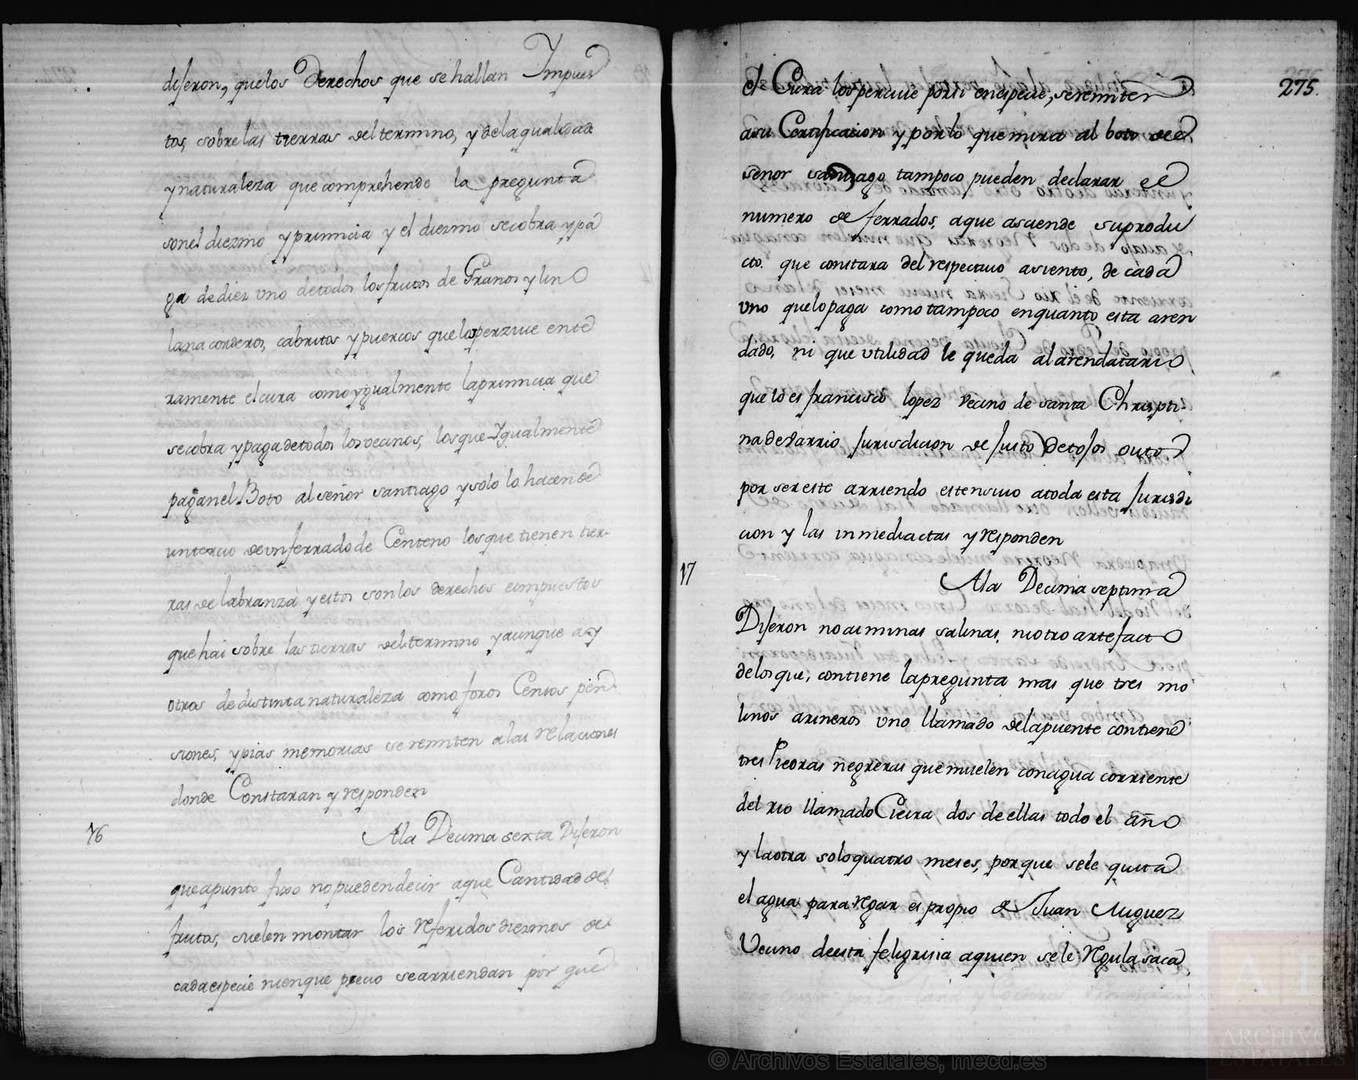 dijeron, quelos Derechos que se hallan Impues
tos, sobre las tierras del termino, y dela qualidad
y naturaleza que comprehende la pregunta
son el diezmo y primicia y el diezmo se cobra y pa
ga de diez uno de todos los frutos de Granos y lino
lana corderos, cabritos y puercos que los perzive ente
ramente el cura como ygualmente la primicia que
se cobra y paga de todos los vecinos, los que Igualmente
pagan el Boto al señor santiago y solo lo hacen de
un tercio de un ferrado de Centeno los que tienen tier-
ras de labranza y estos son los derechos compuestos
que hai sobre las tierras del termino y aunque ay
otros de distinta naturaleza como foros Censos pen
siones, y pias memorias se remiten a las relaciones
donde Constaran y responden
16
Ala Decima sexta Dijeron
que a punto fixo no pueden decir a que Cantidad de
frutos, suelen montar los referidos diezmos de
cada especie ni en que precio se arriendan por que
275.
el Cura los percive por si en especie, se remiten
a su Certificacion y por lo que mira al boto de
señor santiago tampoco pueden declarar el
numero de ferrados, a que asciende su produ
cto. que constara del respectivo asiento, de cada
uno que lo paga como tampoco en quanto esta aren
dado, ni que utilidad le queda al arendatario
que lo es francisco lopez vecino de santa Christi
na de Barrio Jurisdicion de
por ser este arriendo estensivo a toda esta Jurisdi
cion y las inmediactas y responden
17
Ala Decima septima
Dijeron no ai minas salinas, ni otro artefacto
de los que, contiene la pregunta mas que tres mo
linos arineros uno llamado dela puente contiene
tres Piedras negreras que muelen con agua corriente
del rio llamado Cieira dos de ellas todo el año
y la otra solo quatro meses, porque se le quita
el agua para regar es propio de Juan
Vecino de esta feligrisia a quien se le regula saca